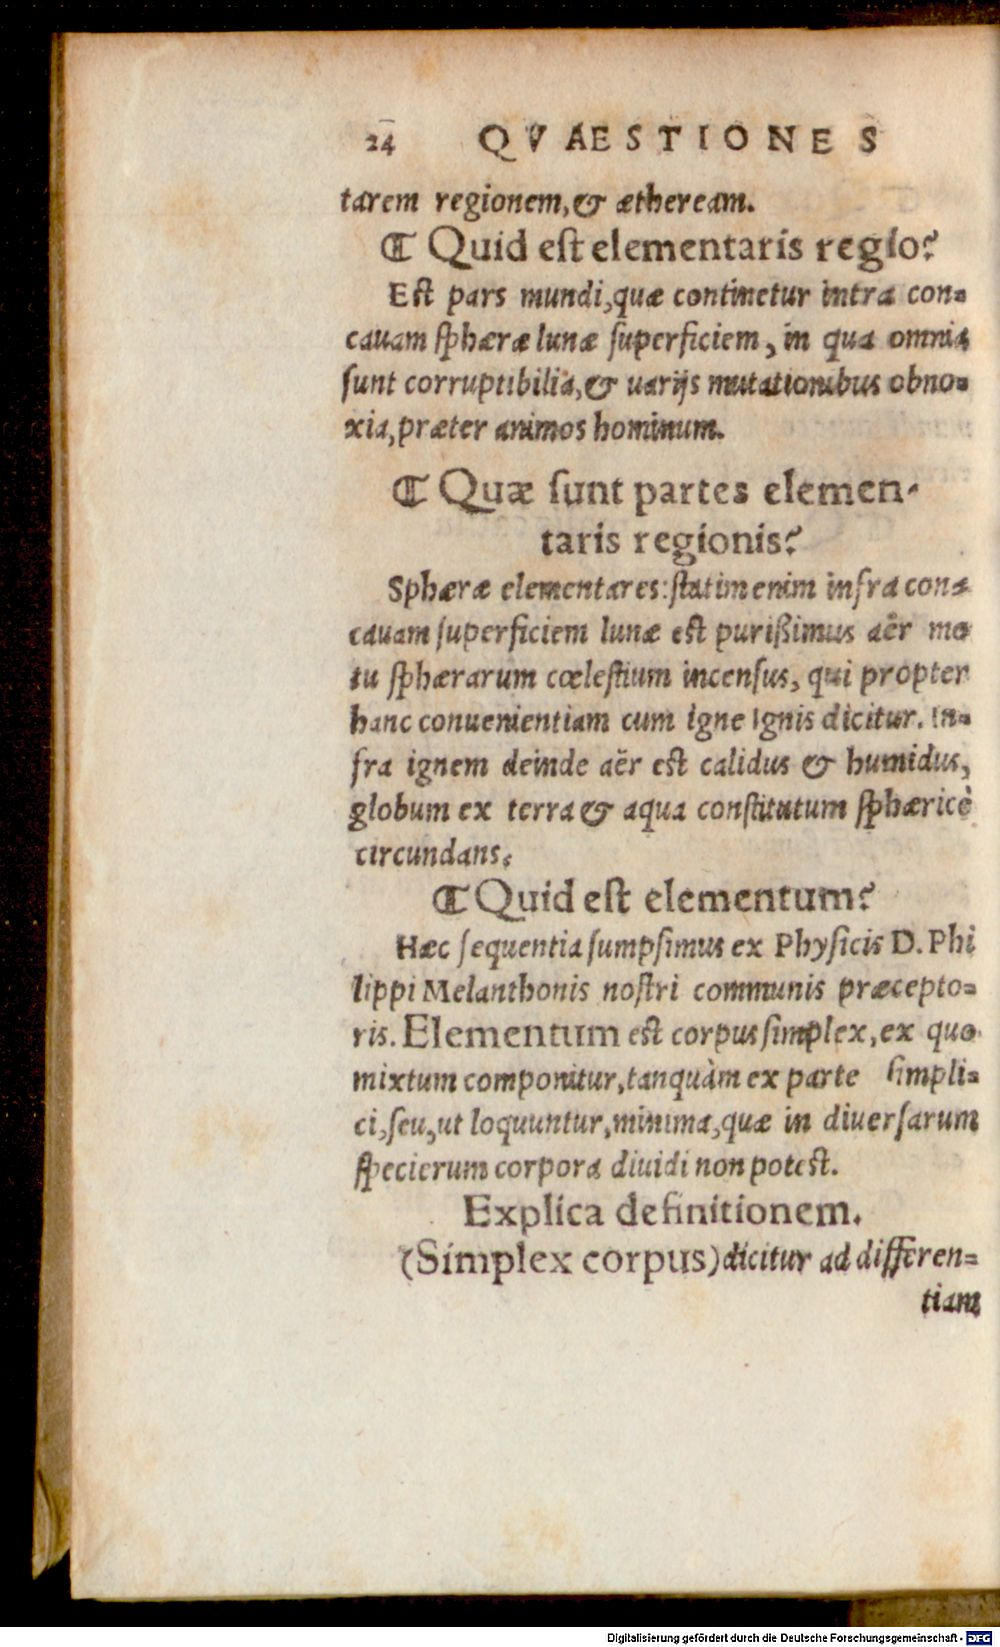 24 QVAESTIONES
tarem regionem, & ætheream.
¶ Quid eſt elementaris regio?
Eſt pars mundi, quæ continetur intra con-
cauam ſphæræ lunæ ſuperficiem, in qua omnia
ſunt corruptibilia, & uarijs mutationibus obno-
xia, præter animos hominum.
¶ Quæ ſunt partes elemen-
taris regionis?
Sphæræ elementares: ſtatim enim infra con-
cauam ſuperficiem lunæ eſt purißimus aër mo
tu ſphærarum cœleſtium incenſus, qui propter
hanc conuenientiam cum igne Ignis dicitur. In-
fra ignem deinde aër eſt calidus & humidus,
globum ex terra & aqua conſtitutum ſphæricè
circundans.
¶ Quid eſt elementum?
Hæc ſequentia ſumpſimus ex Phyſicis D. Phi
lippi Melanthonis noſtri communis præcepto-
ris. Elementum eſt corpus ſimplex, ex quo
mixtum componitur, tanquàm ex parte ſimpli-
ci, ſeu, ut loquuntur, minima, quæ in diuerſarum
ſpecierum corpora diuidi non poteſt.
Explica definitionem.
(Simplex corpus) dicitur ad differen-
tiam
Digitalisierung gefördert durch die Deutsche Forschungsgemeinschaft - DFG